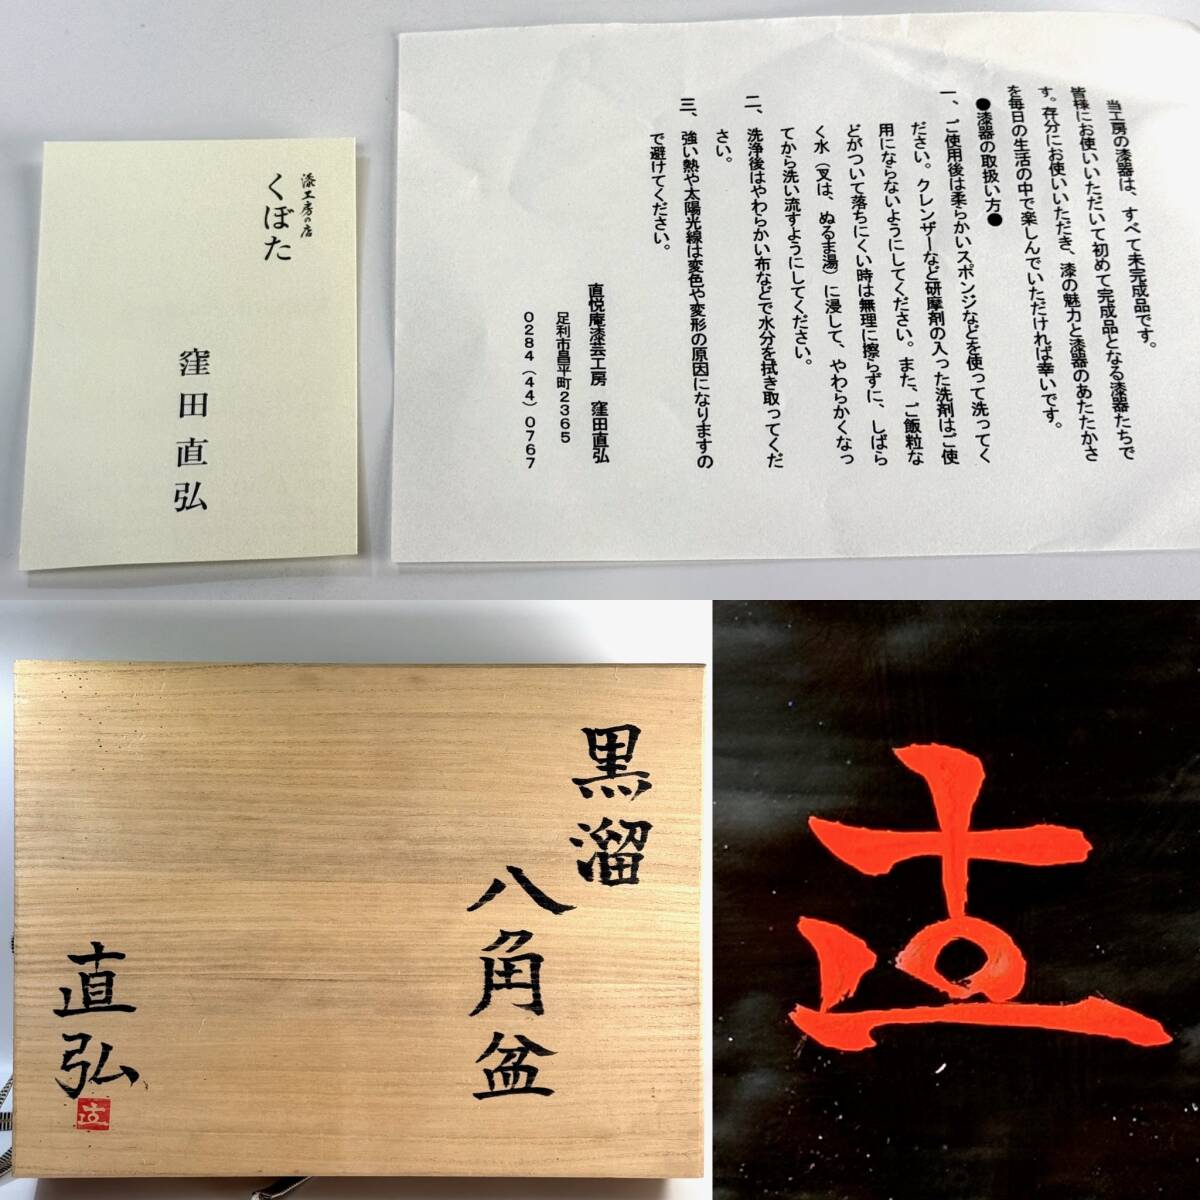 漆工房の店
くぼた
窪田直弘
当工房の漆器は、すべて未完成品です。
皆様にお使いいただいて初めて完成品となる漆器たちで
す。存分にお使いいただき、漆の魅力と漆器のあたたかさ
を毎日の生活の中で楽しんでいただければ幸いです。
●漆器の取扱い方●
一、ご使用後は柔らかいスポンジなどを使って洗ってく
ださい。クレンザーなど研摩剤の入った洗剤はご使
用にならないようにしてください。また、ご飯粒な
どがついて落ちにくい時は無理に擦らずに、しばら
く水（又は、ぬるま湯）に浸して、やわらかくなっ
てから洗い流すようにしてください。
二、洗浄後はやわらかい布などで水分を拭き取ってくだ
さい。
三、強い熱や太陽光線は変色や変形の原因になりますの
で避けてください。
直悦庵漆芸工房 窪田直弘
足利市昌平町2365
0284（44）0767
黒溜
八角盆
直弘